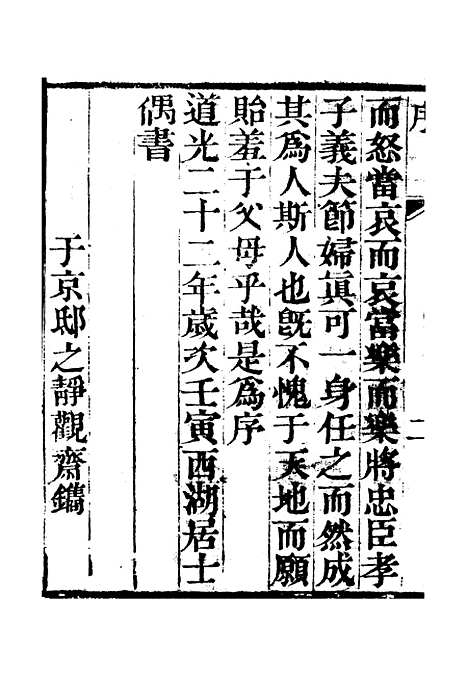 序
二
而怒當哀而哀當樂而樂將忠臣孝
子義夫節婦眞可一身任之而然成
其爲人斯人也旣不愧于天地而願
貽羞于父母乎哉是爲序
道光二十二年歲次壬寅西湖居士
偶書
于京邸之靜觀齋鐫